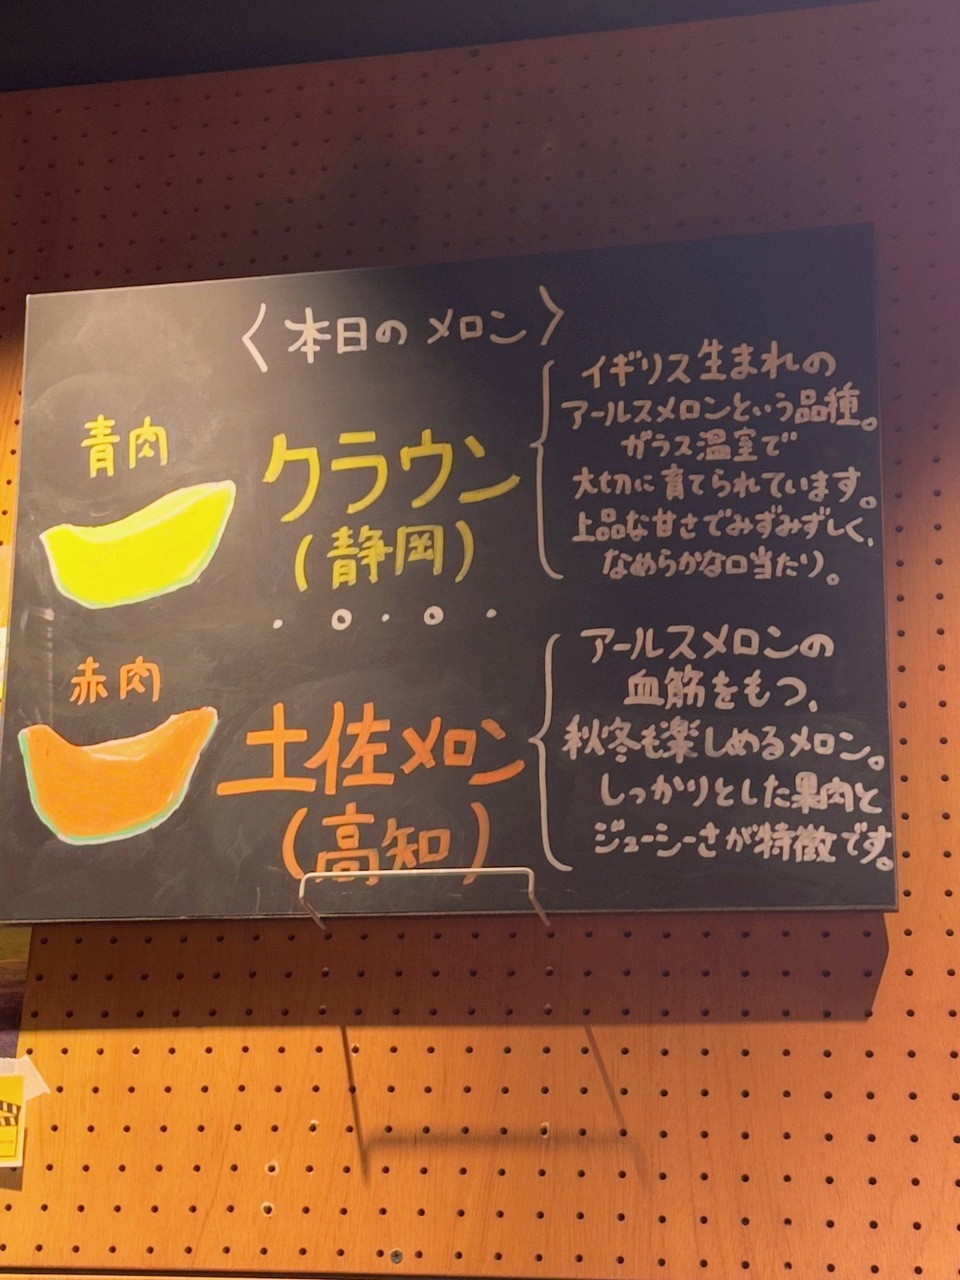 〈本日のメロン〉
青肉
クラウン
(静岡)
イギリス生まれの
アールスメロンという品種。
ガラス温室で
大切に育てられています。
上品な甘さでみずみずしく、
なめらかな口当たり。
赤肉
土佐メロン
(高知)
アールスメロンの
血筋をもつ、
秋冬も楽しめるメロン。
しっかりとした果肉と
ジューシーさが特徴です。